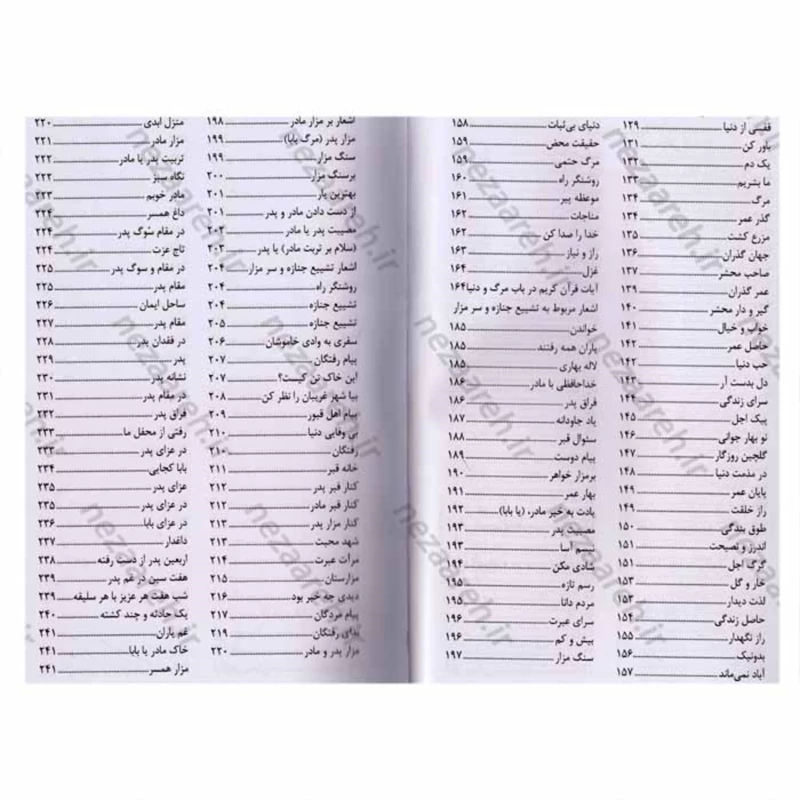 قفسی از دنیا ۱۲۹
باور کن ۱۳۱
یک دم ۱۳۲
ما بشریم ۱۳۳
مرگ ۱۳۴
گذر عمر ۱۳۴
مزرع کشت ۱۳۵
جهان گذران ۱۳۶
صاحب محشر ۱۳۷
عمر گذران ۱۳۹
گیر و دار محشر ۱۴۰
خواب و خیال ۱۴۱
حاصل عمر ۱۴۲
حب دنیا ۱۴۲
دل بدست آر ۱۴۳
سرای زندگی ۱۴۴
پیک اجل ۱۴۵
نو بهار جوانی ۱۴۶
گلچین روزگار ۱۴۷
در مذمت دنیا ۱۴۸
پایان عمر ۱۴۹
راز خلقت ۱۴۹
طوق بندگی ۱۵۰
اندرز و نصیحت ۱۵۱
گرگ اجل ۱۵۱
خار و گل ۱۵۳
لذت دیدار ۱۵۳
حاصل زندگی ۱۵۴
راز نگهدار ۱۵۵
بدونیک ۱۵۶
آباد نمی‌ماند ۱۵۷
دنیای بی‌ثبات ۱۵۸
حقیقت محض ۱۵۹
مرگ حتمی ۱۵۹
روشنگر راه ۱۶۰
موعظه پیر ۱۶۱
مناجات ۱۶۲
خدا را صدا کن ۱۶۲
راز و نیاز ۱۶۳
غزل ۱۶۴
آیات قرآن کریم در باب مرگ و دنیا ۱۶۴
اشعار مربوط به تشییع جنازه و سر مزار
خواندن ۱۸۵
یاران همه رفتند ۱۸۵
لاله بهاری ۱۸۶
خداحافظی با مادر ۱۸۶
فراق پدر ۱۸۶
یاد جاودانه ۱۸۷
سئوال قبر ۱۸۸
پیام دوست ۱۸۹
برمزار خواهر ۱۹۰
بهار عمر ۱۹۱
یادت به خیر مادر، (یا بابا) ۱۹۲
مصیبت پدر ۱۹۳
نسیم آسا ۱۹۳
شادی مکن ۱۹۴
رسم تازه ۱۹۵
مردم دانا ۱۹۵
سرای عبرت ۱۹۶
بیش و کم ۱۹۶
سنگ مزار ۱۹۷
اشعار بر مزار مادر ۱۹۸
مزار پدر (مرگ بابا) ۱۹۹
سنگ مزار ۱۹۹
برسنگ مزار ۲۰۰
بهترین یار ۲۰۱
از دست دادن مادر و پدر ۲۰۱
مصیبت پدر یا مادر ۲۰۲
(سلام بر تربت مادر) یا پدر ۲۰۳
اشعار تشییع جنازه و سر مزار ۲۰۴
روشنگر راه ۲۰۴
تشییع جنازه ۲۰۴
تشییع جنازه ۲۰۵
سفری به وادی خاموشان ۲۰۶
پیام رفتگان ۲۰۷
این خاک تن کیست؟ ۲۰۷
بیا شهر غریبان را نظر کن ۲۰۸
پیام اهل قبور ۲۰۹
بی وفایی دنیا ۲۱۰
رفتگان ۲۱۰
خانه قبر ۲۱۱
کنار قبر پدر ۲۱۲
کنار قبر مادر ۲۱۲
کنار مزار پدر ۲۱۳
شهد محبت ۲۱۳
مرآت عبرت ۲۱۴
مزارستان ۲۱۵
دیدی چه خبر بود ۲۱۶
پیام مردگان ۲۱۷
ندای رفتگان ۲۱۹
مزار پدر و مادر ۲۲۰
منزل ابدی ۲۲۰
مزار مادر ۲۲۱
تربیت پدر یا مادر ۲۲۲
نگاه سبز ۲۲۲
مادر خوبم ۲۲۳
داغ همسر ۲۲۴
در مقام سوگ پدر ۲۲۴
تاج عزت ۲۲۴
در مقام و سوگ پدر ۲۲۵
مقام پدر ۲۲۵
ساحل ایمان ۲۲۶
مقام پدر ۲۲۷
در فقدان پدر ۲۲۸
پدر ۲۲۹
نشانه پدر ۲۳۰
در مقام پدر ۲۳۱
فراق پدر ۲۳۲
رفتی از محفل ما ۲۳۳
در عزای پدر ۲۳۳
بابا کجایی ۲۳۴
در عزای پدر ۲۳۵
در عزای پدر ۲۳۵
در عزای بابا ۲۳۶
داغدار ۲۳۷
اربعین پدر از دست رفته ۲۳۸
هفت سین در غم پدر ۲۳۹
شب هفت هر عزیز با هر سلیقه ۲۳۹
یک حادثه و چند کشته ۲۴۰
غم یاران ۲۴۱
خاک مادر یا بابا ۲۴۱
مزار همسر ۲۴۱
nezaareh.ir